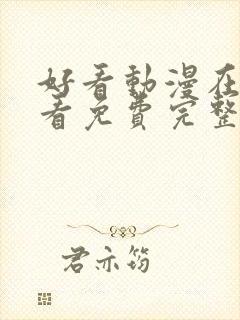 好看動漫在
看免費完整
君亦筠